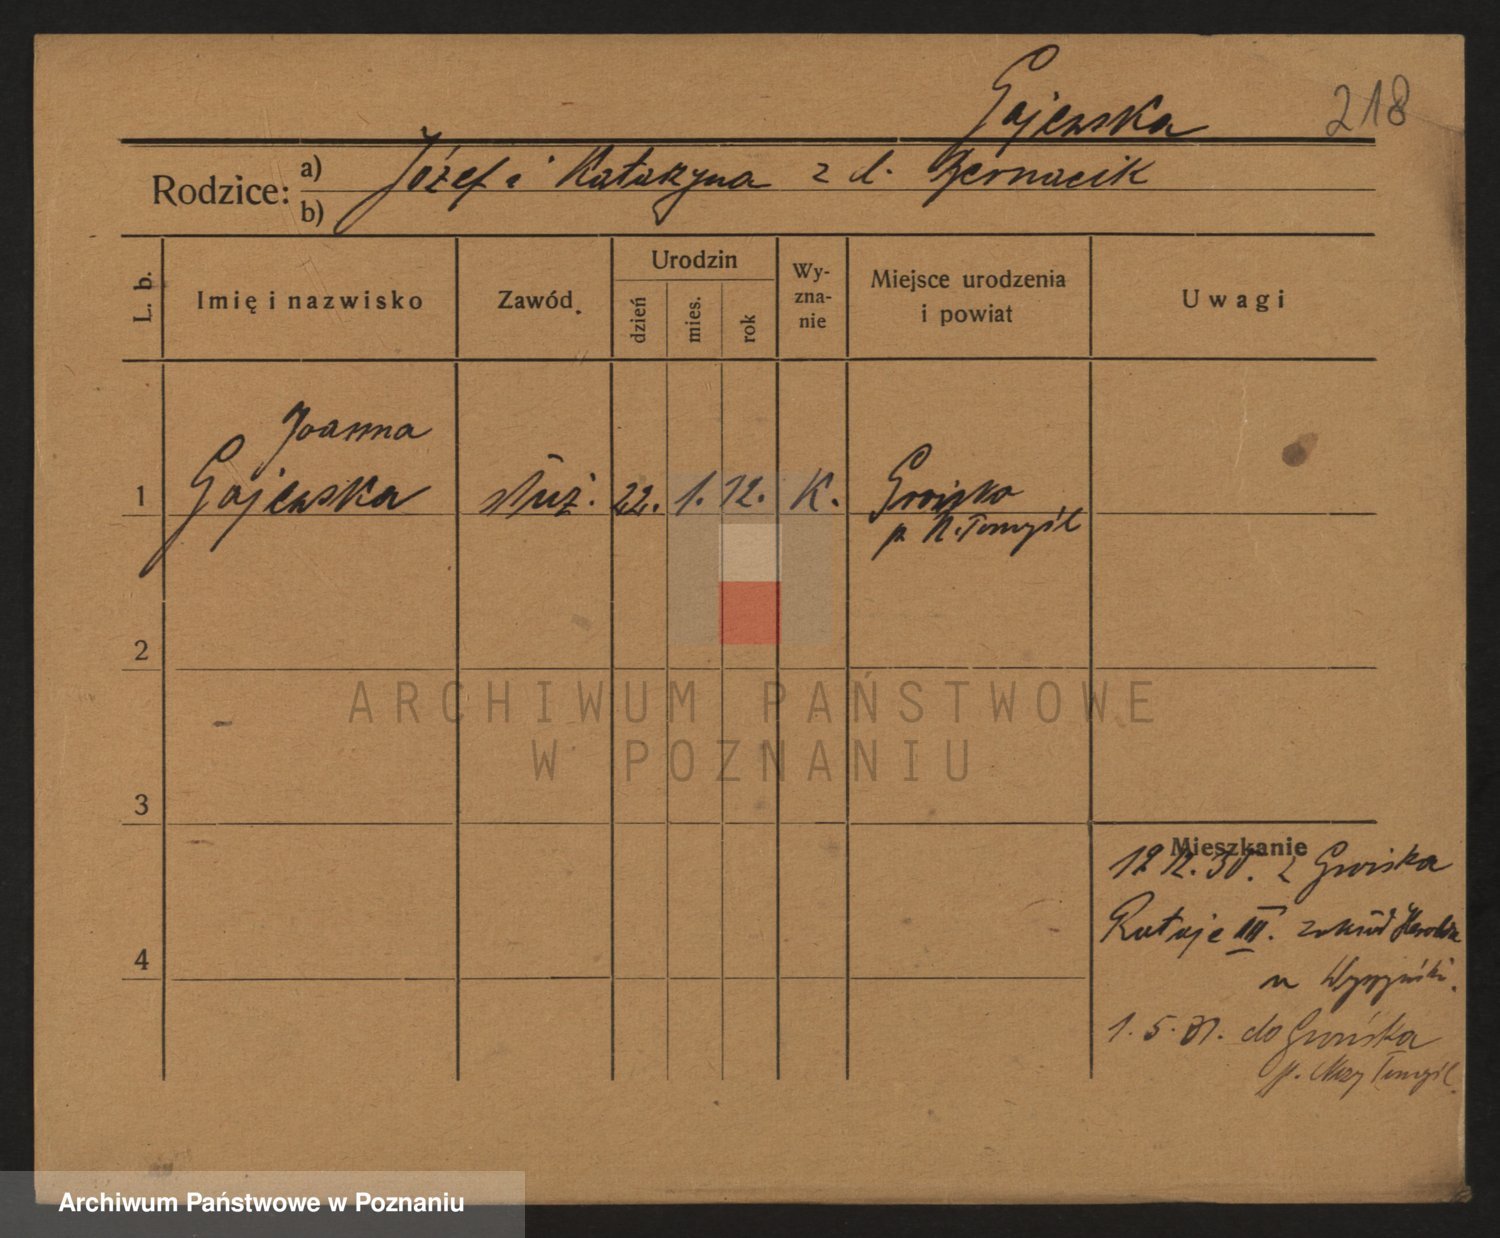 Gajewska
218
Rodzice: a) Józef i Katarzyna z d. Biernacik
b)
L. b.
Imię i nazwisko
Zawód.
Urodzin
dzień
mies.
rok
Wy-
zna-
nie
Miejsce urodzenia
i powiat
Uwagi
Joanna
1 Gajewska służ. 22. 1. 12. K. Grońsko
p. N. Tomyśl
2
3
4
Mieszkanie
12. 30. z Grońska
Rataje III.
u
1. 5. 31. do Grońska
p. Nowy Tomyśl
ARCHIWUM PAŃSTWOWE
W POZNANIU
Archiwum Państwowe w Poznaniu